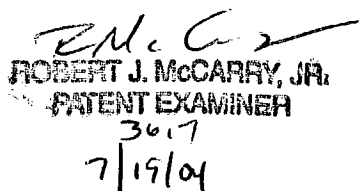 ROBERT J. McCARRY, JR.
PATENT EXAMINER
3617
7/19/04